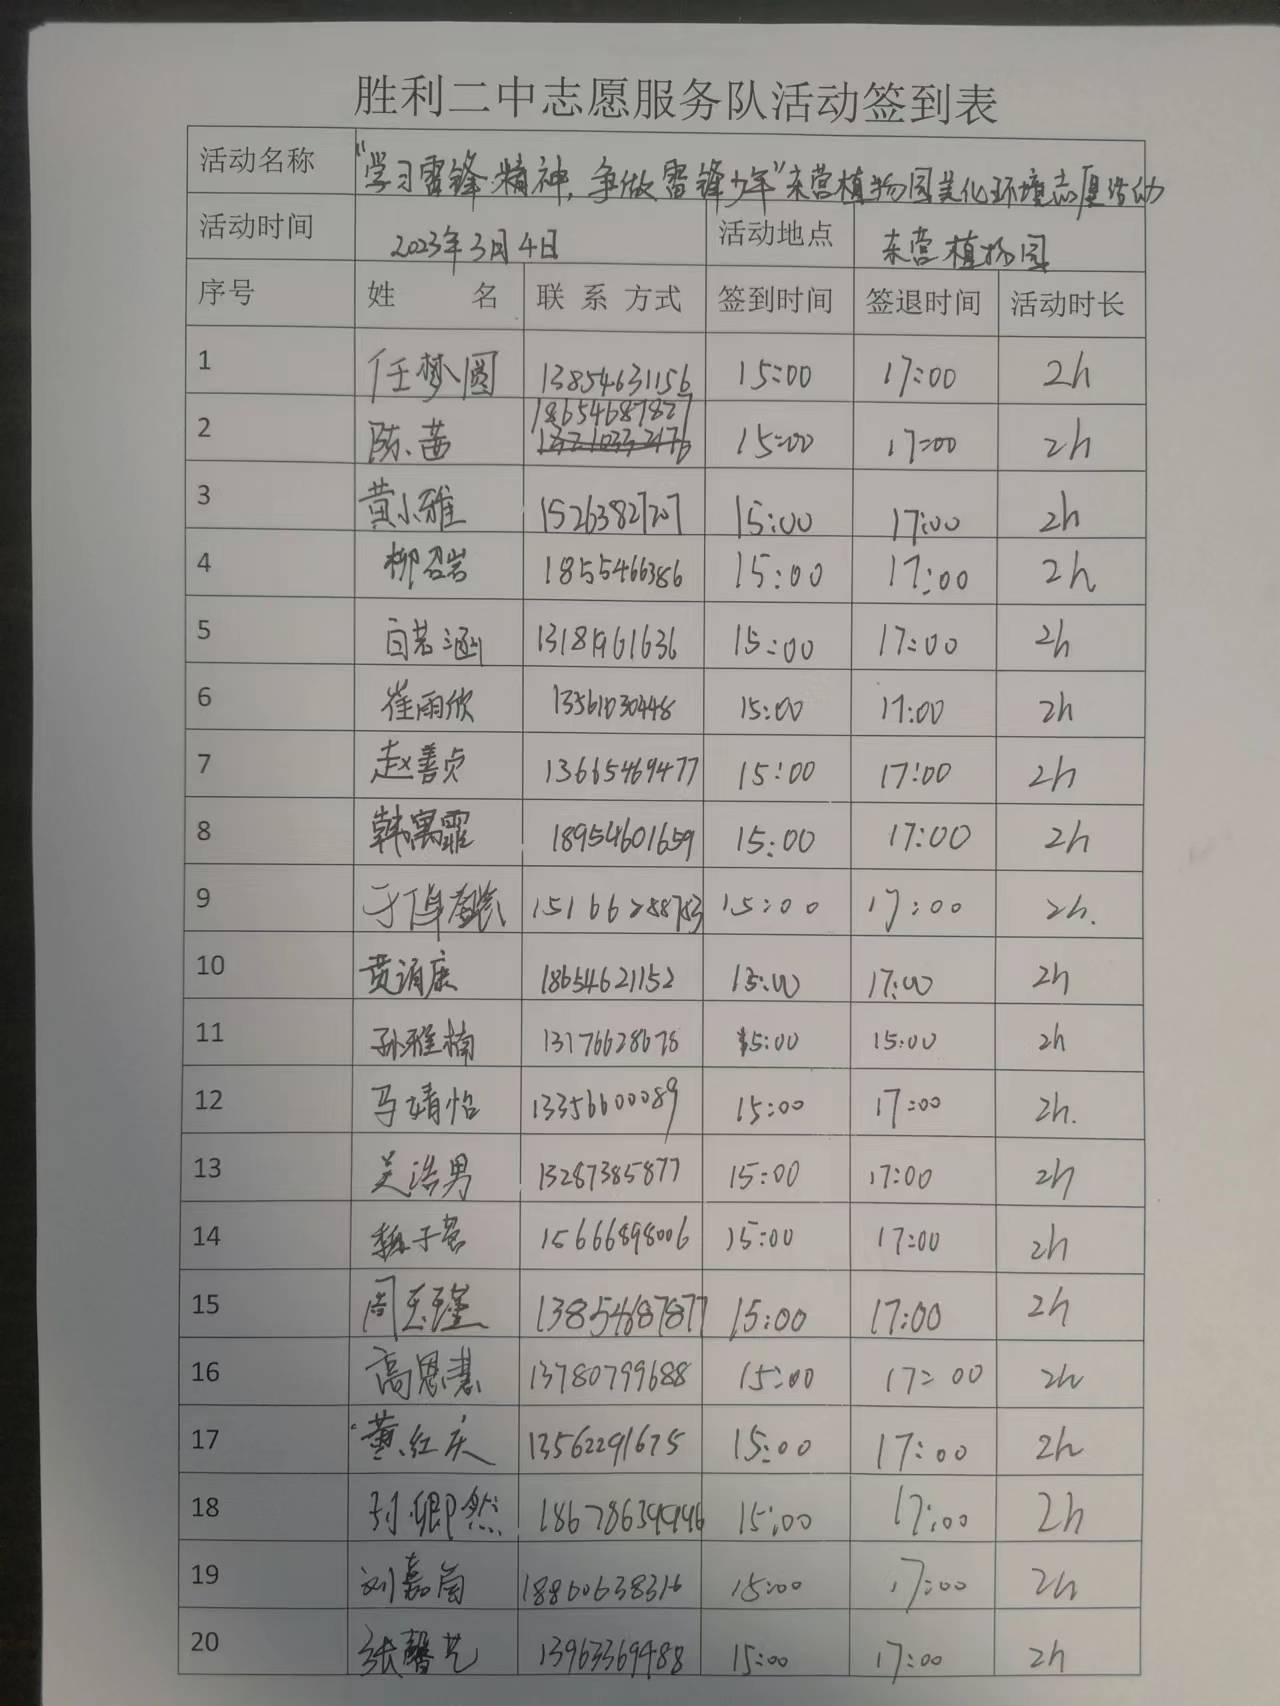 胜利二中志愿服务队活动签到表
活动名称 “学习雷锋精神,争做雷锋少年”东营植物园美化环境志愿活动
活动时间 2023年3月4日 活动地点 东营植物园
序号 姓 名 联系方式 签到时间 签退时间 活动时长
1 任梦圆 13854631156 15:00 17:00 2h
18654687827
2 陈茜 13210332476 15:00 17:00 2h
3 黄小雅 15263827207 15:00 17:00 2h
4 柳召岩 1855466386 15:00 17:00 2h
5 白若涵 13181961636 15:00 17:00 2h
6 崔雨欣 13561030448 15:00 17:00 2h
7 赵善贞 13665469477 15:00 17:00 2h
8 韩寓霏 18954601659 15:00 17:00 2h
9 于 15166288783 15:00 17:00 2h.
10 黄诵康 18654621152 15:00 17:00 2h
11 孙雅楠 13176628678 15:00 15:00 2h
12 马靖怡 13356600089 15:00 17:00 2h.
13 吴浩男 13287385877 15:00 17:00 2h
14 魏子茗 15666898006 15:00 17:00 2h
15 周玉瑾 13854687877 15:00 17:00 2h
16 高恩惠 13780799688 15:00 17:00 2h
17 黄红庆 13562291675 15:00 17:00 2h
18 孙卿然 18678639996 15:00 17:00 2h
19 刘嘉尚 18860638316 15:00 17:00 2h
20 张馨艺 13963369488 15:00 17:00 2h